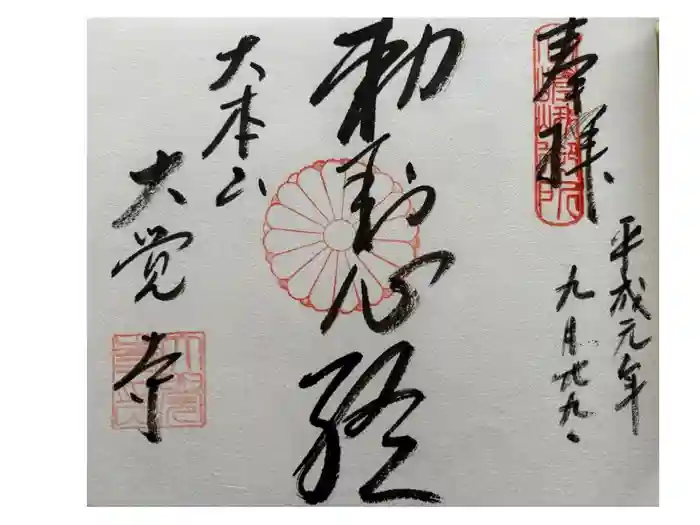 奉拝
平成元年
九月廿九日
勅封心経
大本山
大覚寺